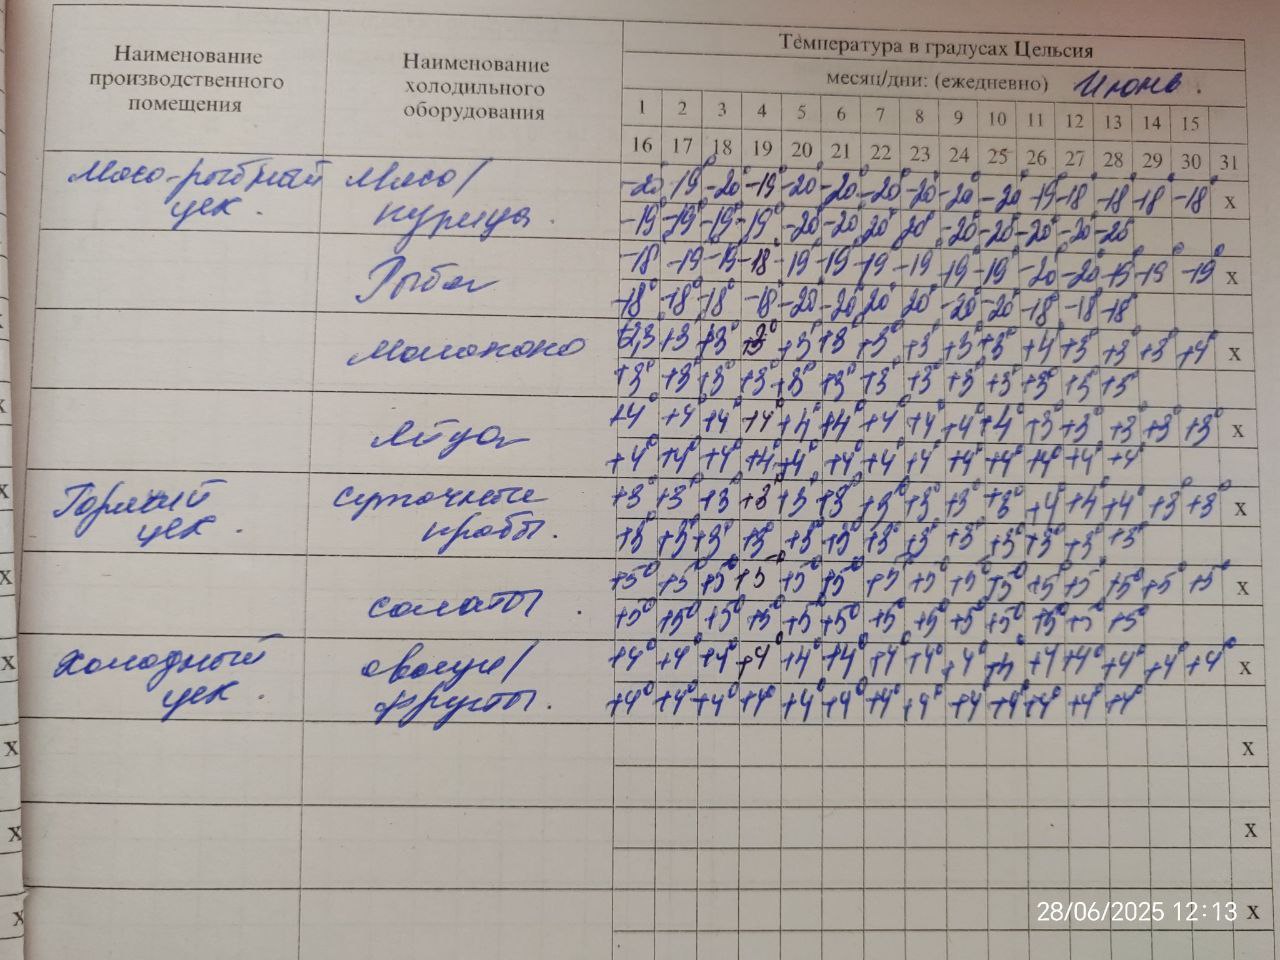 Наименование производственного помещения
Наименование холодильного оборудования
Температура в градусах Цельсия
месяц/дни: (ежедневно) Июнь.
1 2 3 4 5 6 7 8 9 10 11 12 13 14 15
16 17 18 19 20 21 22 23 24 25 26 27 28 29 30 31
Мясо-рыбный цех.
Мясо/курица.
-20° 19° -20° -19° -20° -20° -20° -20° -20° -20 19° -18° -18° -18° -18° х
-19° -19° -19° -19° -20° -20° 20° 20° -20° -20° -20° -20 -20
Рыба
-18 -19° -19° -18° -19 -19° -19 -19 19° -19° -20° -20° -19° -19° -19° х
-18° -18° -18° -18 -20° -20° 20° 20° -20° -20° -18° -18° -18°
Молоко
+3° +3° +3° +3 +3° +3° +3° +3° +4° +3° +3° +3° +4° х
+3° +3° +3° +3° +3° +3° +3° +3° +3° +3° +3° +3 +3°
Яйца
+4° +4° +4° +4° +4° +4° +4° +4° +4° +4 +3° +3° +3° +3° +3° х
+4° +4° +4° +4° +4° +4° +4° +4° +4° +4° +4° +4° +4°
Горячий цех.
суточные пробы.
+3° +3° +3 +3° +3° +3° +3° +3° +3° +3° +4° +4° +4° +3° +3° х
+3° +3° +3° +3° +3° +3° +3° +3° +3° +3° +3° +3° +3°
салаты.
+5° +5° +5° +5° +5° +5° +5 +5° +5° +5° +5° +5° +5° +5° +5° х
+5° +5° +5° +5° +5° +5° +5° +5° +5° +5° +5° +5° +5°
Холодный цех.
овощи/фрукты.
+4° +4° +4° +4° +4° +4° +4° +4° +4° +4 +4° +4° +4° +4° +4° х
+4° +4° +4° +4° +4° +4° +4° +4° +4° +4° +4° +4° +4°
х
х
х
28/06/2025 12:13